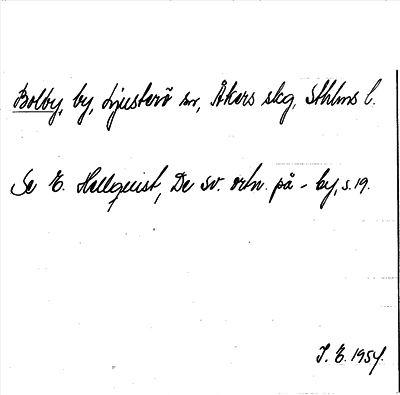 Bolby, by, Ljusterö sn, Åkers skg, Sthlms l.
Se E. Hellquist, De sv. ortn. på -by, s. 19.
J. E. 1954.